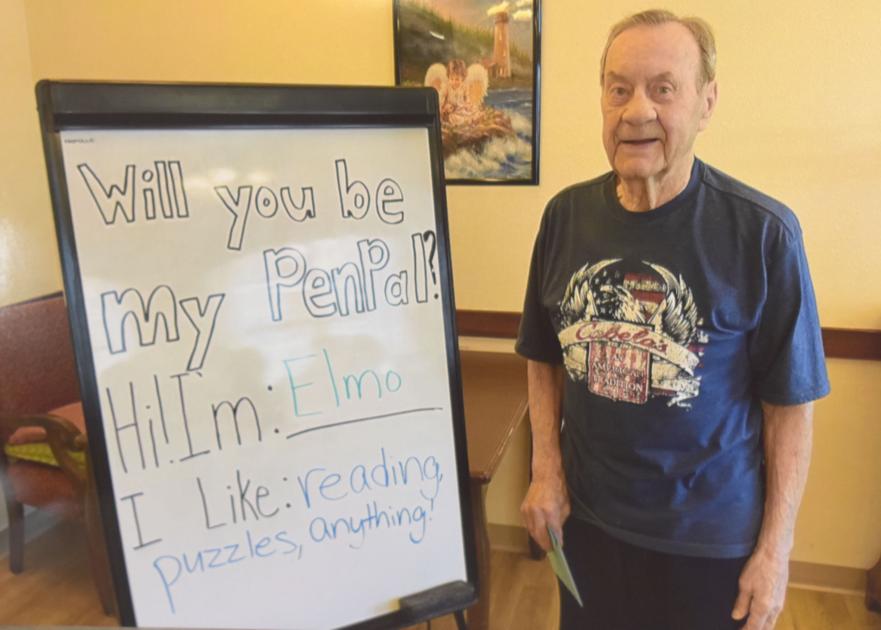 Will you be
my PenPal?
Hi! I'm: Elmo
I Like: reading,
puzzles, anything!
Cabela's
AMERICAN
TRADITION